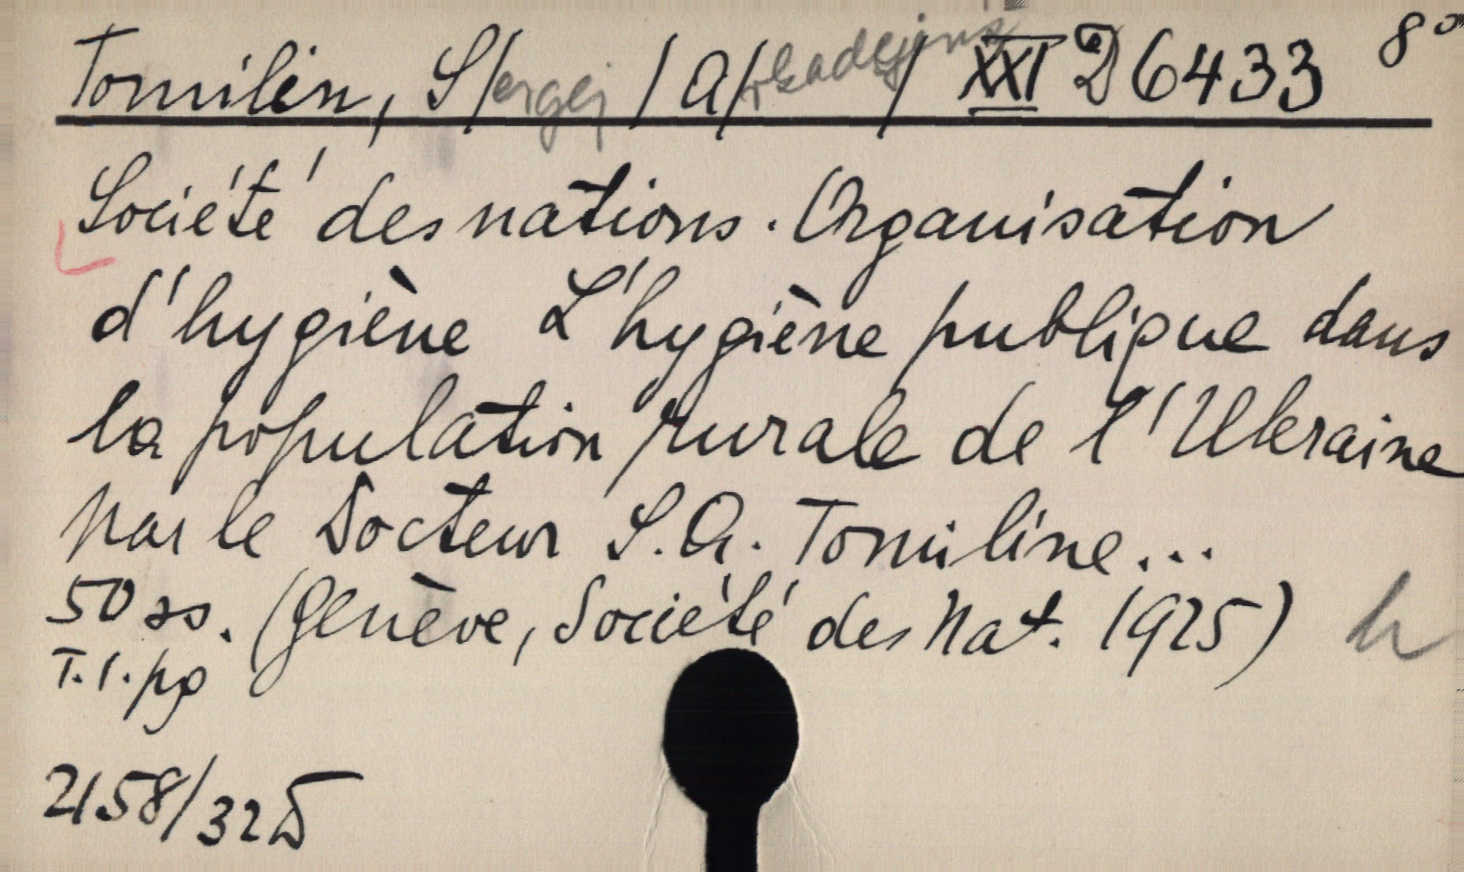 Tomilin, S/ergej/A/rkadejevič/ XXI D 6433 8°
Société des nations. Organisation
d'hygiène L'hygiène publique dans
la population rurale de l'Ukraine
par le Docteur S.A. Tomiline...
50 ss. (Genève, Société des Nat. 1925) h
T.1.pg
2158/32 D